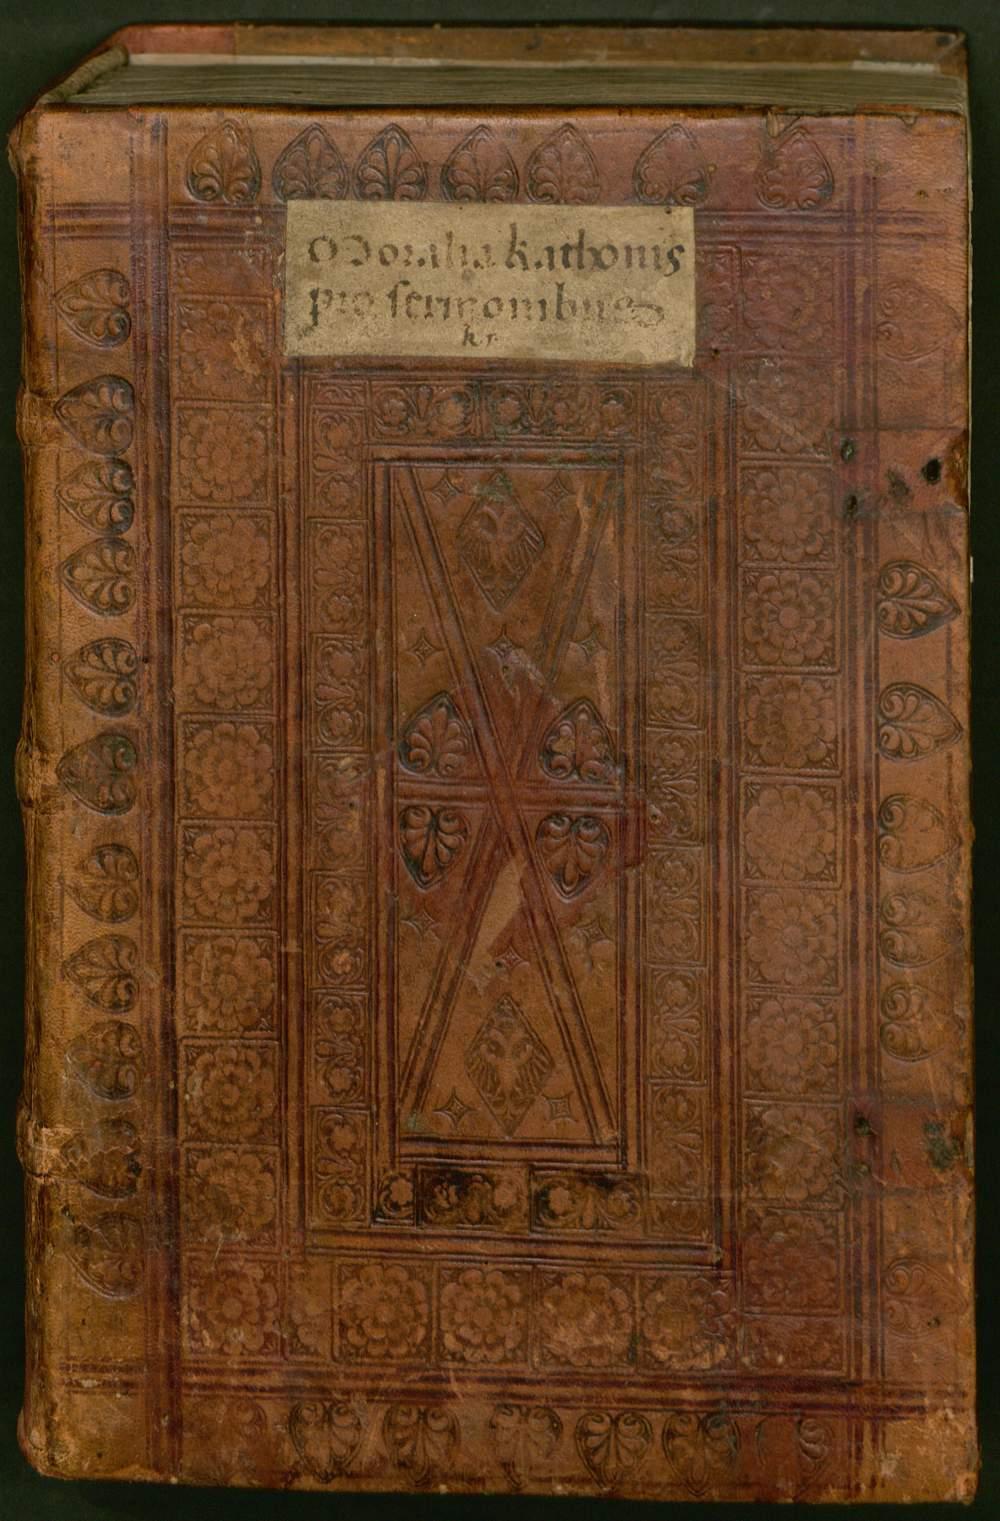 Moralia kathonis
pro sermonibus
k r.